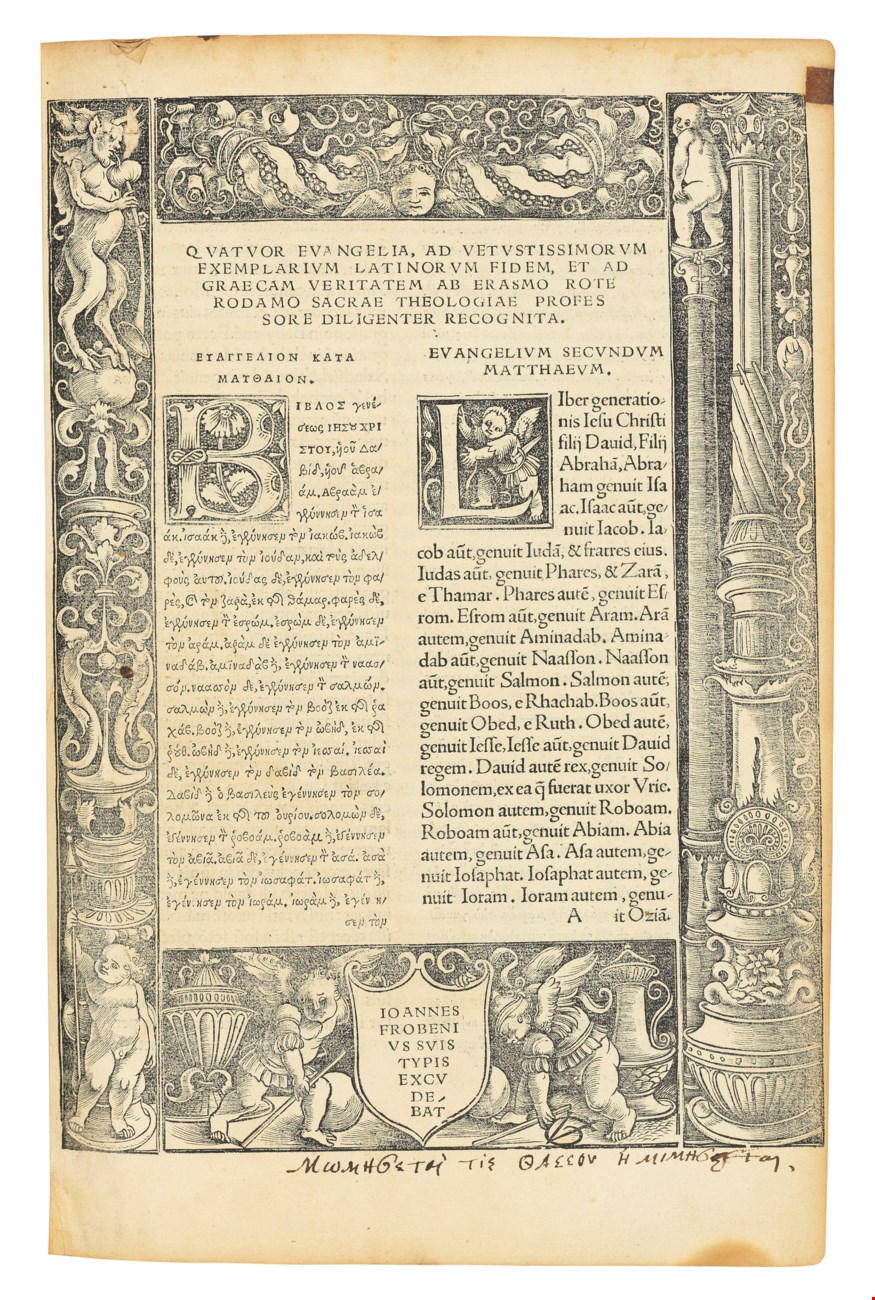 QVATVOR EVANGELIA, AD VETVSTISSIMORVM
EXEMPLARIVM LATINORVM FIDEM, ET AD
GRAECAM VERITATEM AB ERASMO ROTE
RODAMO SACRAE THEOLOGIAE PROFES
SORE DILIGENTER RECOGNITA.
ΕΥΑΓΓΕΛΙΟΝ ΚΑΤΑ
ΜΑΤΘΑΙΟΝ.
ΒΙΒΛΟΣ γενέ
σεως ΙΗΣΟΥ ΧΡΙ
ΣΤΟΥ, ἡοῦ Δα/
βὶδ, ἡοῦ ἀβρα/
άμ. Αβραὰμ ἐ/
γέννησεν τὸν ἰσα
άκ. ισαὰκ δὲ, ἐγέννησεν τὸν ἰακώβ. ἰακὼβ
δὲ, ἐγέννησεν τὸν ἰούδαν, καὶ τοὺς ἀδελ/
φοὺς αυτου. ἰούδας δὲ, ἐγέννησεν τὸν φα/
ρὲς, καὶ τὸν ζαρὰ, ἐκ τῆς θάμαρ. φαρὲς δὲ,
ἐγέννησεν τὸν ἐσρώμ. ἐσρὼμ δὲ, ἐγέννησεν
τὸν ἀράμ. ἀρὰμ δὲ ἐγέννησεν τὸν ἀμῖ/
ναδάβ. ἀμῖναδὰβ δὲ, ἐγέννησεν τὸν ναασ/
σόμ. ναασσὸμ δὲ, ἐγέννησεν τὸν σαλμών.
σαλμὼν δὲ, ἐγέννησεν τὸν βοὸζ ἐκ τῆς ρα
χάβ. βοὸζ δὲ, ἐγέννησεν τὸν ὠβὴδ, ἐκ τῆς
ῥούθ. ὠβὴδ δὲ, ἐγέννησεν τὸν ιεσσαί. ιεσσαὶ
δὲ, ἐγέννησεν τὸν δαβὶδ τὸν βασιλέα.
Δαβὶδ δὲ ὁ βασιλεὺς ἐγέννησεν τὸν σο/
λομῶνα ἐκ τῆς του ουρίου. σολομὼν δὲ,
ἐγέννησεν τὸν ῥοβοάμ. ῥοβοὰμ δὲ, ἐγέννησεν
τὸν ἀβιά. ἀβιὰ δὲ, ἐγέννησεν τὸν ἀσά. ἀσὰ
δὲ, ἐγέννησεν τὸν ἰωσαφάτ. ἰωσαφὰτ δὲ,
ἐγέννησεν τὸν ἰωράμ. ἰωρὰμ δὲ, ἐγέν νη/
σεν τὸν
EVANGELIVM SECVNDVM
MATTHAEVM.
LIber generatio/
nis Iesu Christi
filij Dauid, Filij
Abrahã, Abra/
ham genuit Isa
ac. Isaac aũt, ge/
nuit Iacob. Ia/
cob aũt, genuit Iudã, & fratres eius.
Iudas aũt, genuit Phares, & Zarã,
e Thamar. Phares autẽ, genuit Es/
rom. Esrom aũt, genuit Aram. Arã
autem, genuit Aminadab. Amina/
dab aũt, genuit Naasson. Naasson
aũt, genuit Salmon. Salmon autẽ,
genuit Boos, e Rhachab. Boos aũt,
genuit Obed, e Ruth. Obed autẽ,
genuit Iesse, Iesse aũt, genuit Dauid
regem. Dauid autẽ rex, genuit So/
lomonem, ex ea q̃ fuerat uxor Vrie.
Solomon autem, genuit Roboam.
Roboam aũt, genuit Abiam. Abia
autem, genuit Asa. Asa autem, ge/
nuit Iosaphat. Iosaphat autem, ge/
nuit Ioram. Ioram autem, genu/
A it Oziã.
IOANNES
FROBENI
VS SVIS
TYPIS
EXCV
DE/
BAT
ΜωΜΗσεται τις ΘΑΣΣΟΝ Η ΜΙΜΗσεται,